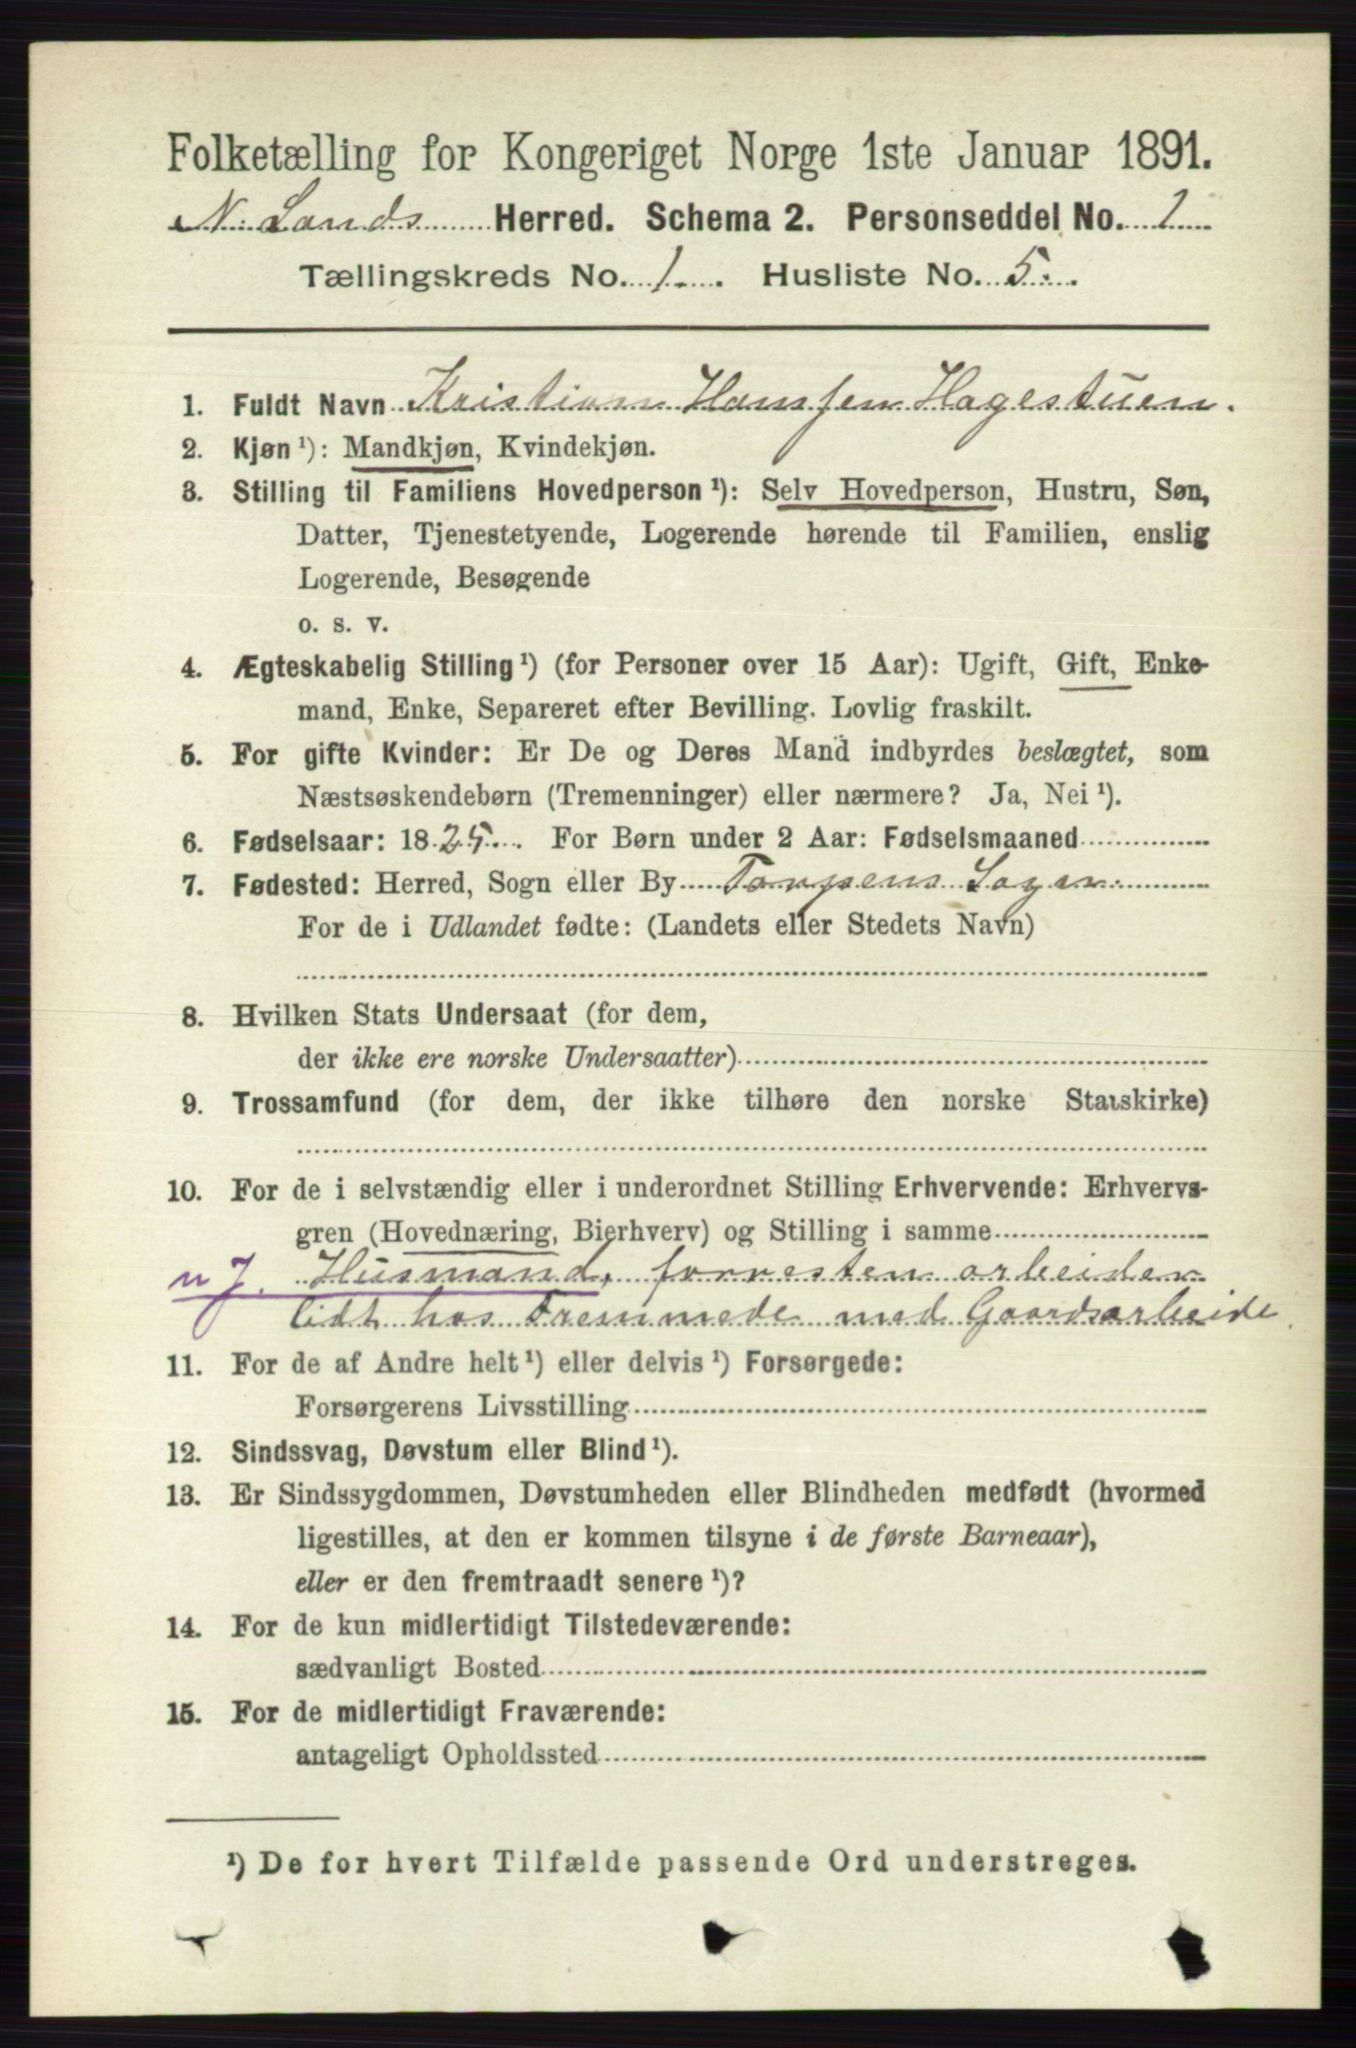 Folketælling for Kongeriget Norge 1ste Januar 1891.
N. Lands Herred. Schema 2. Personseddel No. 1
Tællingskreds No. 1. Husliste No. 5.
1. Fuldt Navn Kristian Hansen Hagestuen.
2. Kjøn ¹): Mandkjøn, Kvindekjøn.
3. Stilling til Familiens Hovedperson ¹): Selv Hovedperson, Hustru, Søn,
Datter, Tjenestetyende, Logerende hørende til Familien, enslig
Logerende, Besøgende
o. s. v.
4. Ægteskabelig Stilling ¹) (for Personer over 15 Aar): Ugift, Gift, Enke-
mand, Enke, Separeret efter Bevilling. Lovlig fraskilt.
5. For gifte Kvinder: Er De og Deres Mand indbyrdes beslægtet, som
Næstsøskendebørn (Tremenninger) eller nærmere? Ja, Nei ¹).
6. Fødselsaar: 1825. For Børn under 2 Aar: Fødselsmaaned
7. Fødested: Herred, Sogn eller By Torpens Sogn
For de i Udlandet fødte: (Landets eller Stedets Navn)
8. Hvilken Stats Undersaat (for dem,
der ikke ere norske Undersaatter)
9. Trossamfund (for dem, der ikke tilhøre den norske Statskirke)
10. For de i selvstændig eller i underordnet Stilling Erhvervende: Erhvervs-
gren (Hovednæring, Bierhverv) og Stilling i samme
n J. Husmand, forresten arbeider
lidt hos Fremmede med Gaardsarbeide
11. For de af Andre helt ¹) eller delvis ¹) Forsørgede:
Forsørgerens Livsstilling
12. Sindssvag, Døvstum eller Blind ¹).
13. Er Sindssygdommen, Døvstumheden eller Blindheden medfødt (hvormed
ligestilles, at den er kommen tilsyne i de første Barneaar),
eller er den fremtraadt senere ¹)?
14. For de kun midlertidigt Tilstedeværende:
sædvanligt Bosted
15. For de midlertidigt Fraværende:
antageligt Opholdssted
¹) De for hvert Tilfælde passende Ord understreges.